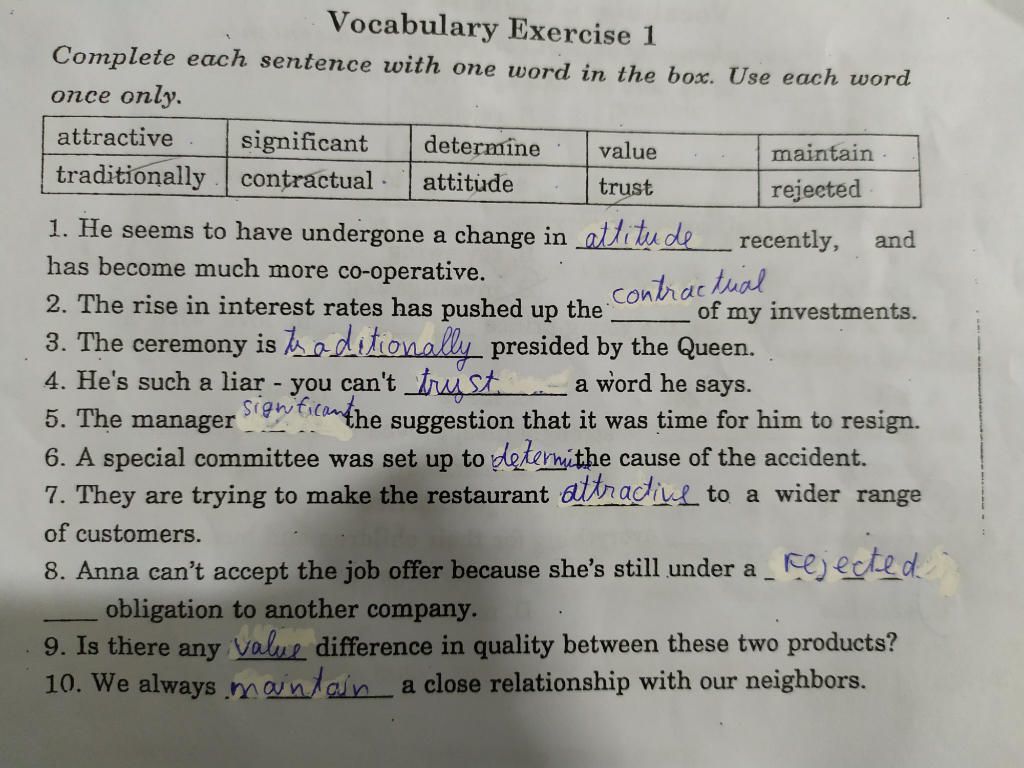 Vocabulary Exercise 1
Complete each sentence with one word in the box. Use each word
once only.
attractive significant determine value maintain
traditionally contractual attitude trust rejected
1. He seems to have undergone a change in attitude recently, and
has become much more co-operative.
2. The rise in interest rates has pushed up the contractual of my investments.
3. The ceremony is traditionally presided by the Queen.
4. He's such a liar - you can't trust a word he says.
5. The manager significant the suggestion that it was time for him to resign.
6. A special committee was set up to determine the cause of the accident.
7. They are trying to make the restaurant attractive to a wider range
of customers.
8. Anna can't accept the job offer because she's still under a rejected
____ obligation to another company.
9. Is there any value difference in quality between these two products?
10. We always maintain a close relationship with our neighbors.